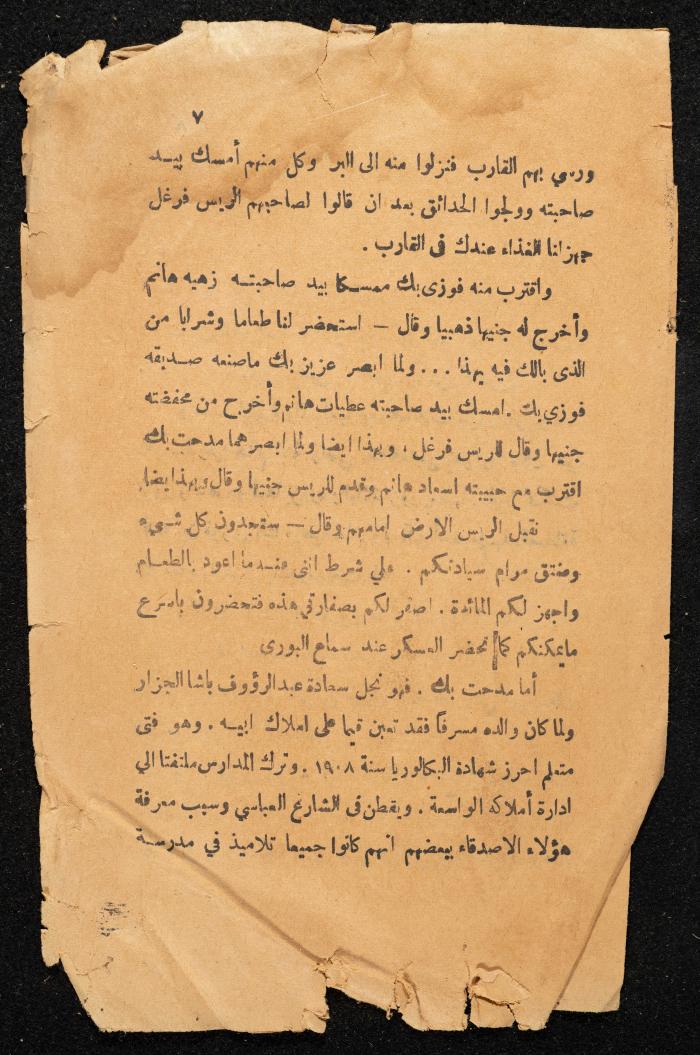 ٧
ورسي بهم القارب فنزلوا منه الى البر وكل منهم أمسك بيـد
صاحبته وولجوا الحدائق بعد ان قالوا لصاحبهم الريس فرغل
جهز لنا الغذاء عندك فى القارب .
واقترب منه فوزى بك ممسـكا بيد صاحبتـه زهيه هانم
وأخرج له جنيها ذهبيا وقال — استحضر لنا طعاما وشرابا من
الذى بالك فيه بهذا ... ولما ابصر عزيز بك ماصنعه صـديقه
فوزي بك . امسك بيد صاحبته عطيات هانم وأخرج من محفضته
جنيها وقال للريس فرغل ، وبهذا ايضا ولما ابصرهما مدحت بك
اقترب مع حبيبته اسعاد هانم وقدم للريس جنيها وقال وبهذا ايضا
نقبل الريس الارض امامهم وقال — ستجدون كل شيء
وفتق مرام سيادتكم . علي شرط اننى عنـدما اعود بالطعـام
واجهز لكم المائدة . اصفر لكم بصفارتي هذه فتحضرون باسرع
مايمكنكم كما تحضر العسكر عند سماع البورى
أما مدحت بك . فهو نجل سعادة عبد الرؤوف باشا الجزار
ولما كان والده مسرفاً فقد تعين قيما على املاك ابيـه . وهو فتى
متعلم احرز شهادة البكالوريا سنة ١٩٠٨ . وترك المدارس ملتفتا الي
ادارة أملاكه الواسعة . ويقطن فى الشارع العباسي وسبب معرفة
هؤلاء الاصدقاء ببعضهم انهم كانوا جميعا تلاميذ في مدرسـة